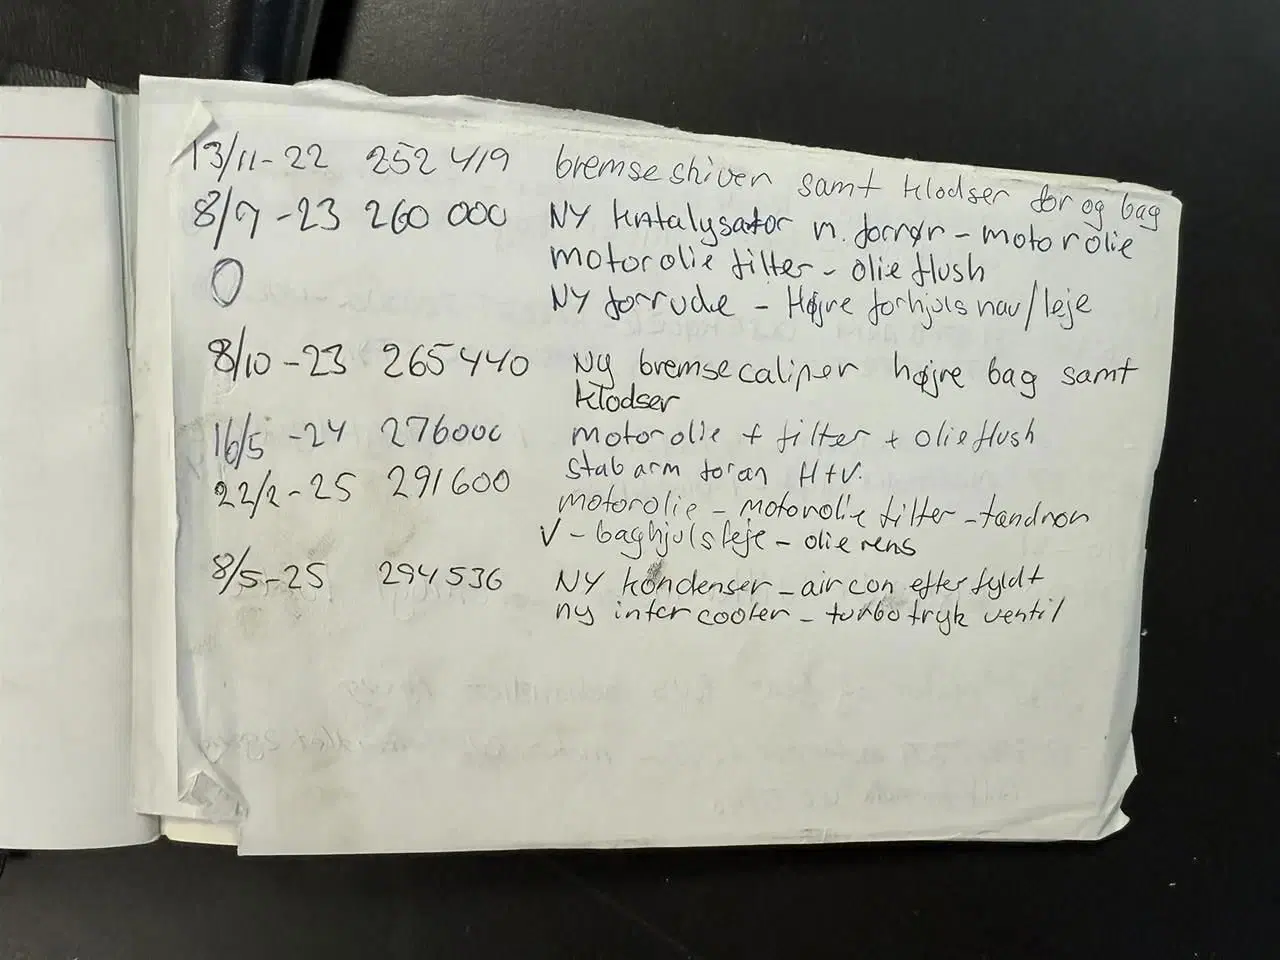 13/11-22 252 419 bremseskiver samt klodser for og bag
8/7-23 260 000 NY katalysator m. forrør - motorolie
motorolie filter - olie flush
0 NY forrude - Højre forhjuls nav/leje
8/10-23 265 440 Ny bremsecaliper højre bag samt
klodser
16/5-24 276000 motorolie + filter + olieflush
stabarm foran H+V.
22/2-25 291600 motorolie - motorolie filter - tandrem
V - baghjulsleje - olie rens
8/5-25 294536 NY kondenser - aircon efterfyldt
ny intercooler - turbotryk ventil